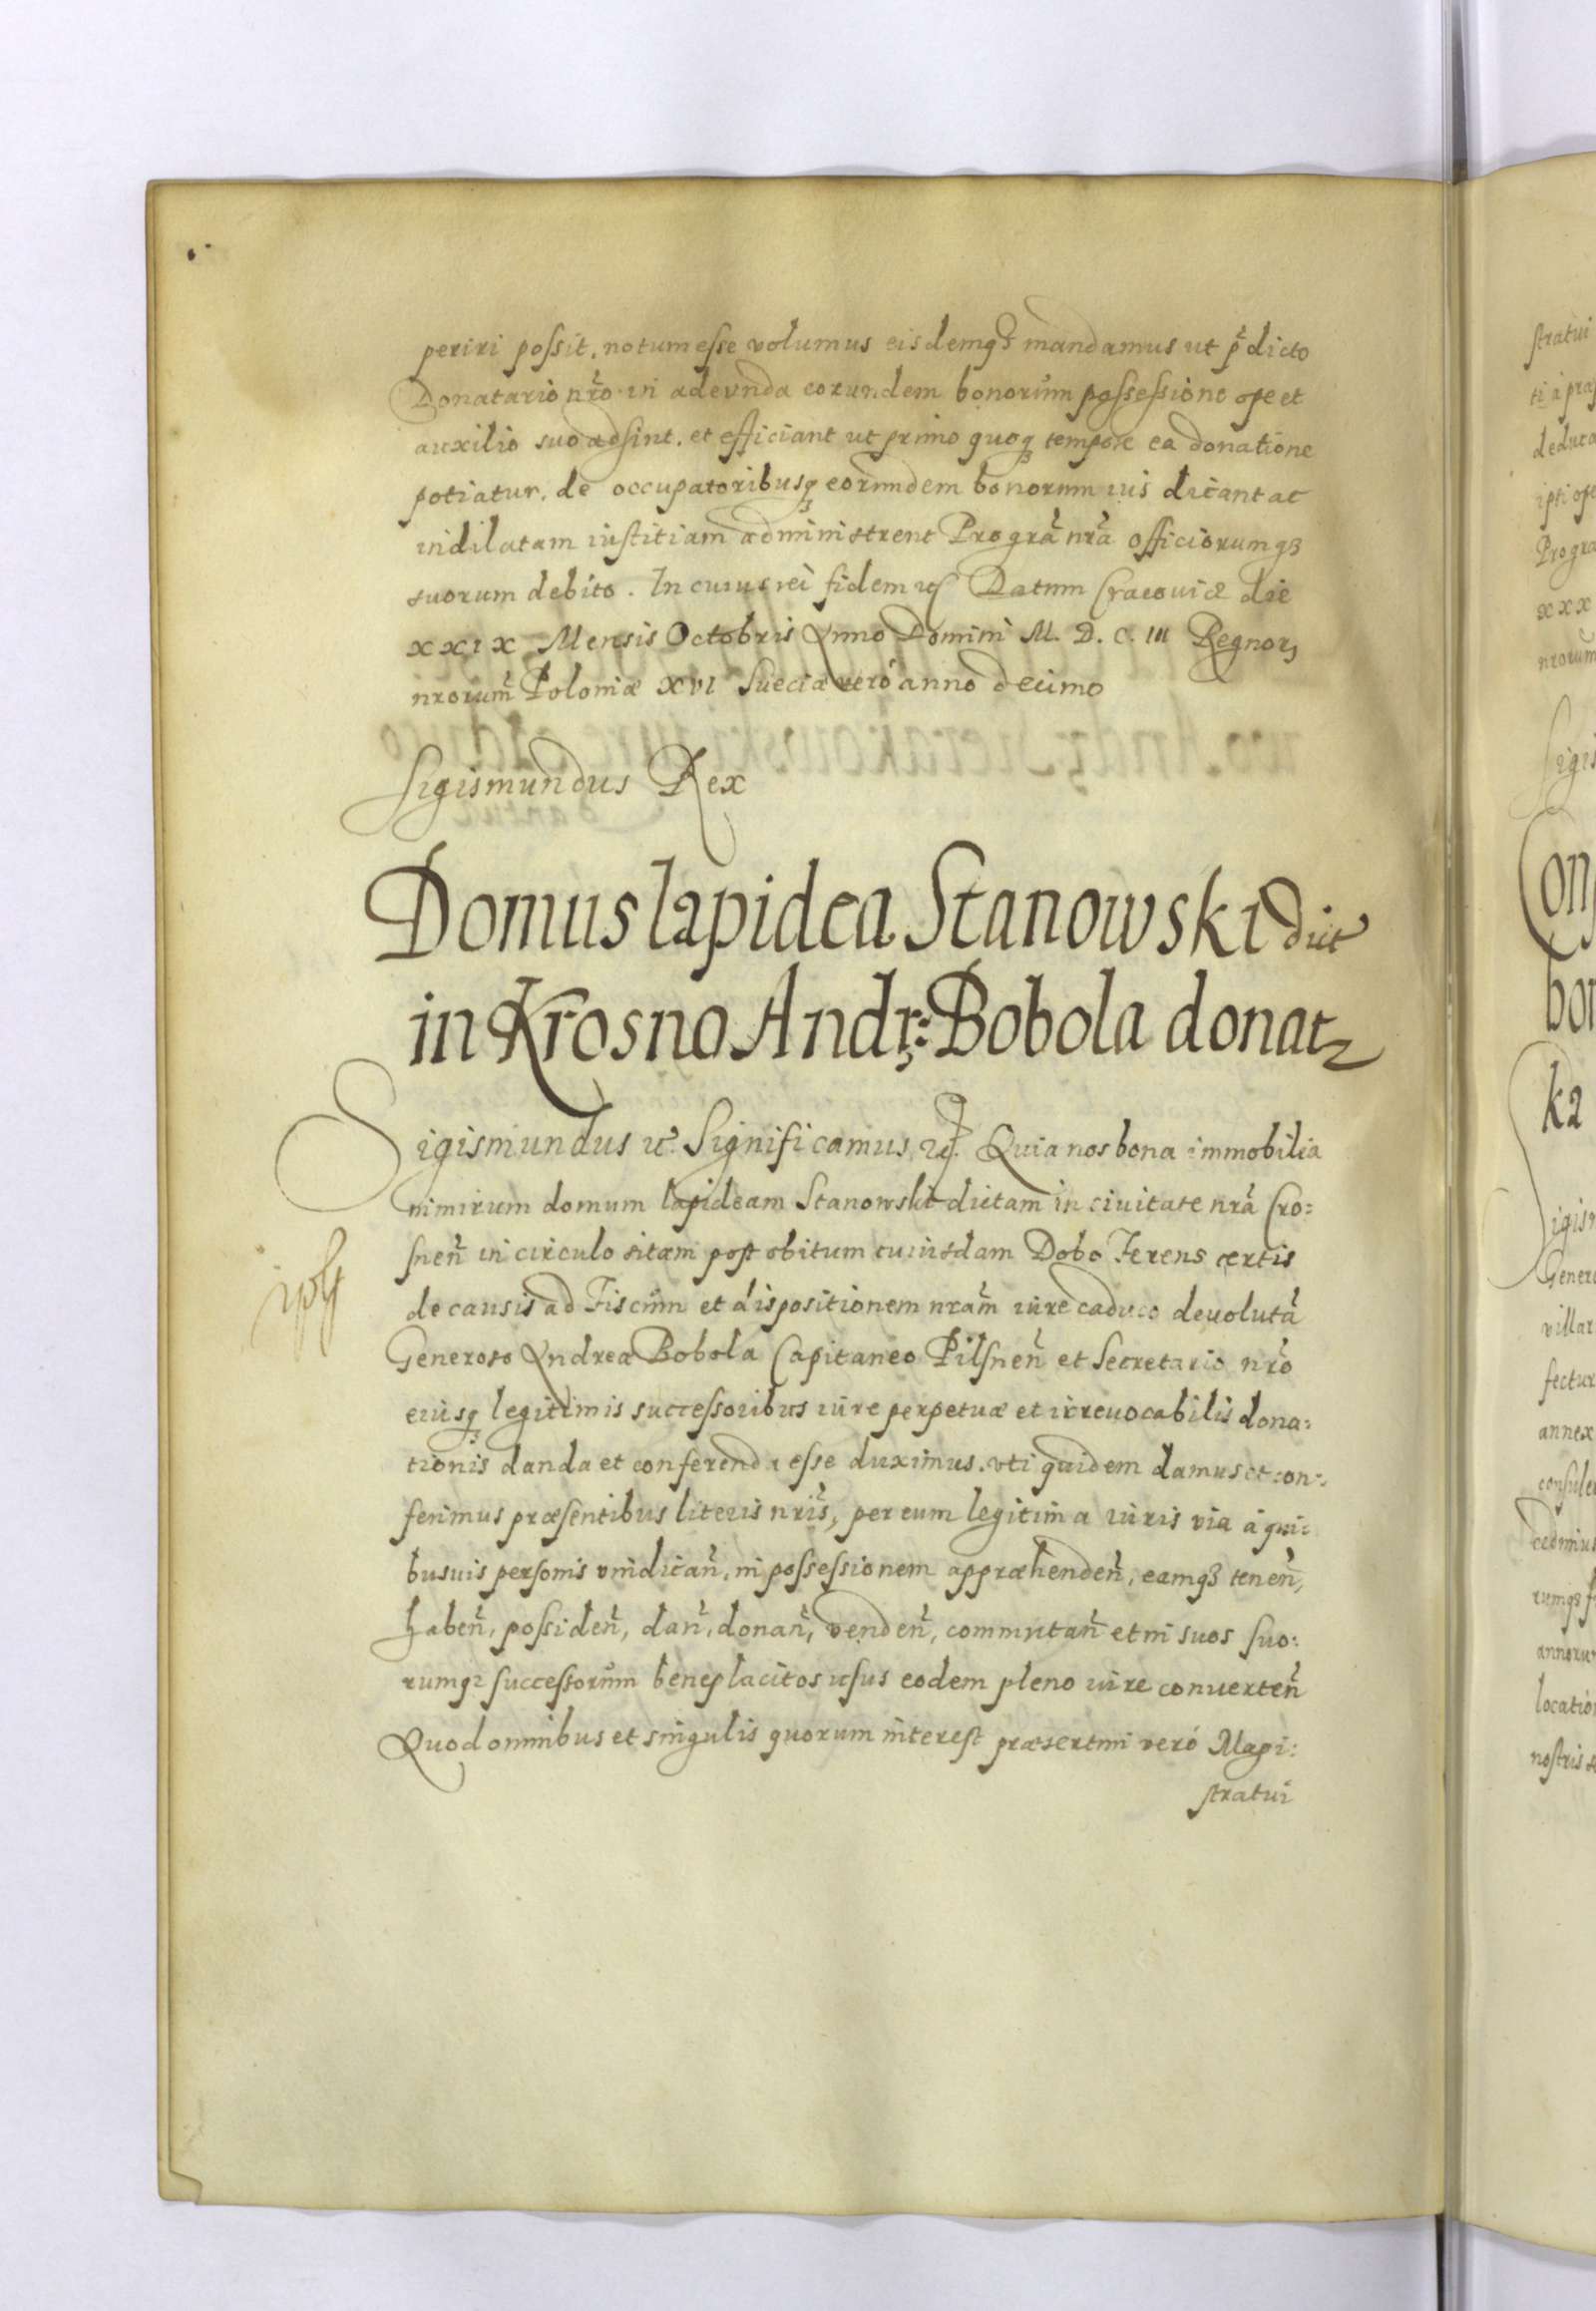 periri possit, notum esse volumus eisdemq3 mandamus ut p̃dicto
Donatario nr̃o in adeunda eorundem bonorum possessione ope et
auxilio suo adsint, et efficiant ut primo quoq tempore ea donatione
potiatur, de occupatoribusq eorundem bonorum ius dicant ac
indilatam iustitiam administrent Pro grã nrã officiorumq3
suorum debito. In cuius rei fidem etc Datum Cracouiæ die
XXIX Mensis Octobris Anno Domini M. D. C. III Regnor
nrorum̃ Poloniæ XVI Sueciæ verò anno decimo
Sigismundus Rex
Domus lapidea Stanowski dict
in Krosno Andr: Bobola donat
Sigismundus etc. Significamus etc. Quia nos bona immobilia
nimirum domum lapideam Stanowski dictam in ciuitate nrã Cro:
snen̄ in circulo sitam post obitum cuiusdam Dobo Ferens certis
de causis ad Fiscum et dispositionem nrãm iure caduco deuolutã
Generoso Andreæ Bobola Capitaneo Pilsnen̄ et Secretario nr̃o
eiusq legitimis successoribus iure perpetuæ et irreuocabilis dona:
tionis danda et conferenda esse duximus. vti quidem damus et con:
ferimus præsentibus literis nris̃, per eum legitima iuris via à qui:
busuis personis vindican̄, in possessionem appræhenden̄, eamq3 tenen̄,
haben̄, possiden̄, dan̄, donan̄, venden̄, commutan̄ et in suos suo:
rumq3 successorum beneplacitos usus eodem pleno iure conuerten̄
Quod omnibus et singulis quorum interest præsertim verò Magi:
stratui